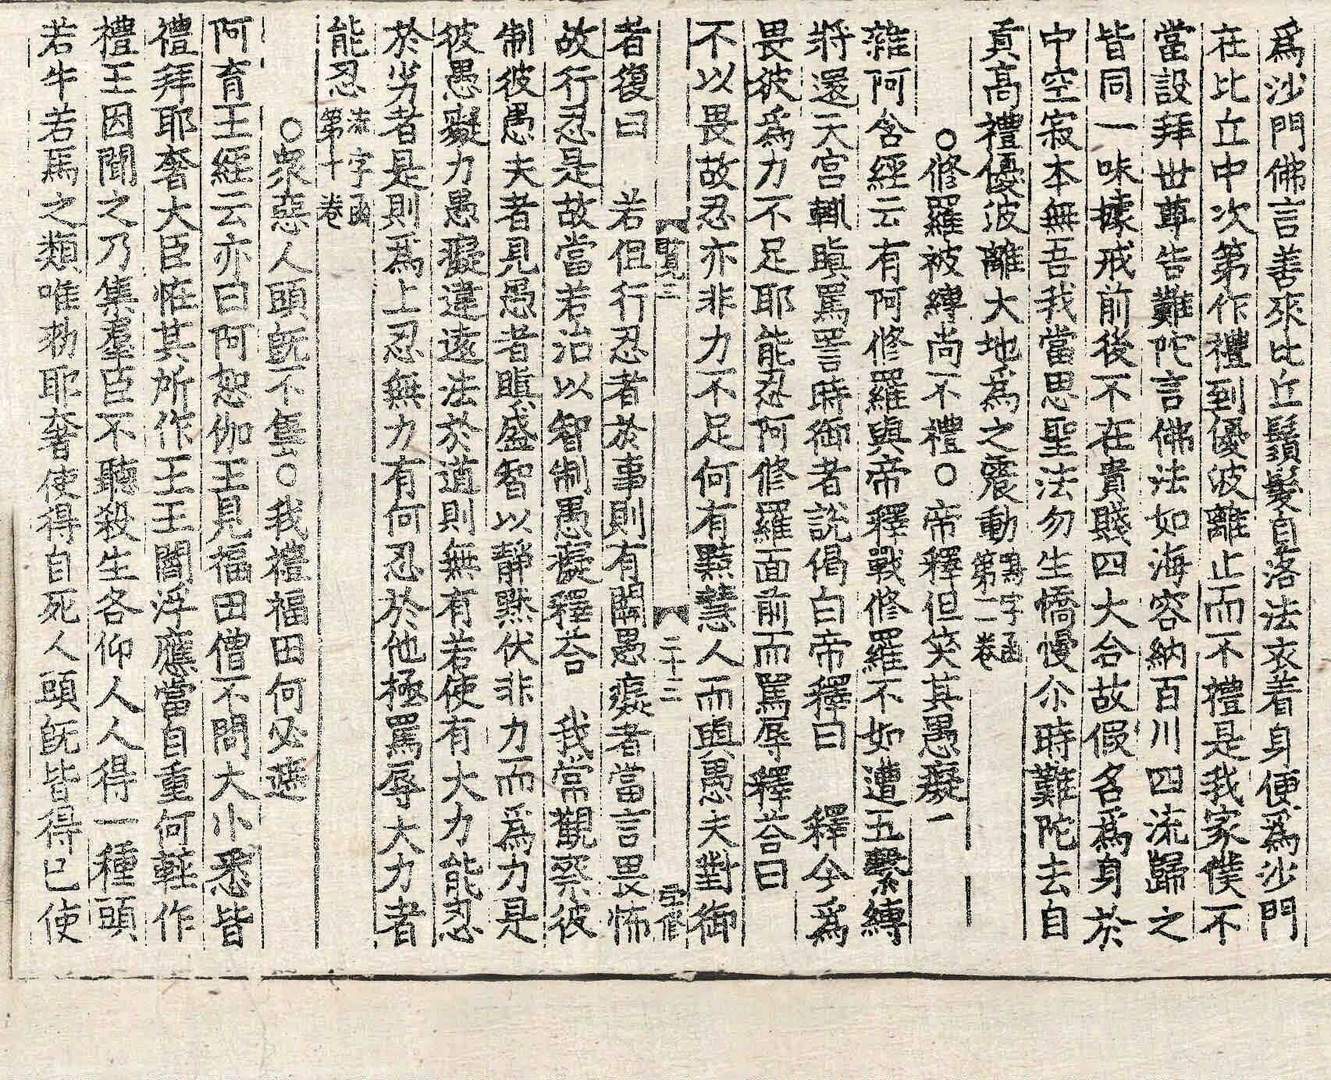 爲沙門佛言善來比丘鬚髮自落法衣着身便爲沙門
在比丘中次第作禮到優波離止而不禮是我家僕不
當設拜世尊告難陀言佛法如海容納百川四流歸之
皆同一味據戒前後不在貴賤四大合故假名爲身於
中空寂本無吾我當思聖法勿生憍慢尒時難陀去自
貢高禮優波離大地爲之震動 字函第二卷
○修羅被縛尚不禮○帝釋但笑其愚癡一
雜阿含經云有阿修羅與帝釋戰修羅不如遭五繫縛
將還天宮輒瞋罵詈時御者說偈白帝釋曰 釋今爲
畏彼爲力不足耶能忍阿修羅面前而罵辱釋荅曰
不以畏故忍亦非力不足何有黠慧人而與愚夫對御
覽三 二十二
者復曰 若但行忍者於事則有闕愚癡者當言畏怖
故行忍是故當若治以智制愚癡釋荅 我常觀察彼
制彼愚夫者見愚者瞋盛智以靜默伏非力而爲力是
彼愚癡力愚癡違遠法於道則無有若使有大力能忍
於劣者是則爲上忍無力有何忍於他極罵辱大力者
能忍 流字函第十卷
○衆惡人頭旣不售○我禮福田何必遮
阿育王經云亦曰阿恕伽王見福田僧不問大小悉皆
禮拜耶奢大臣恠其所作王王閻浮應當自重何輕作
禮王因聞之乃集羣臣不聽殺生各仰人人得一種頭
若牛若馬之類唯勑耶奢使得自死人頭旣皆得已使